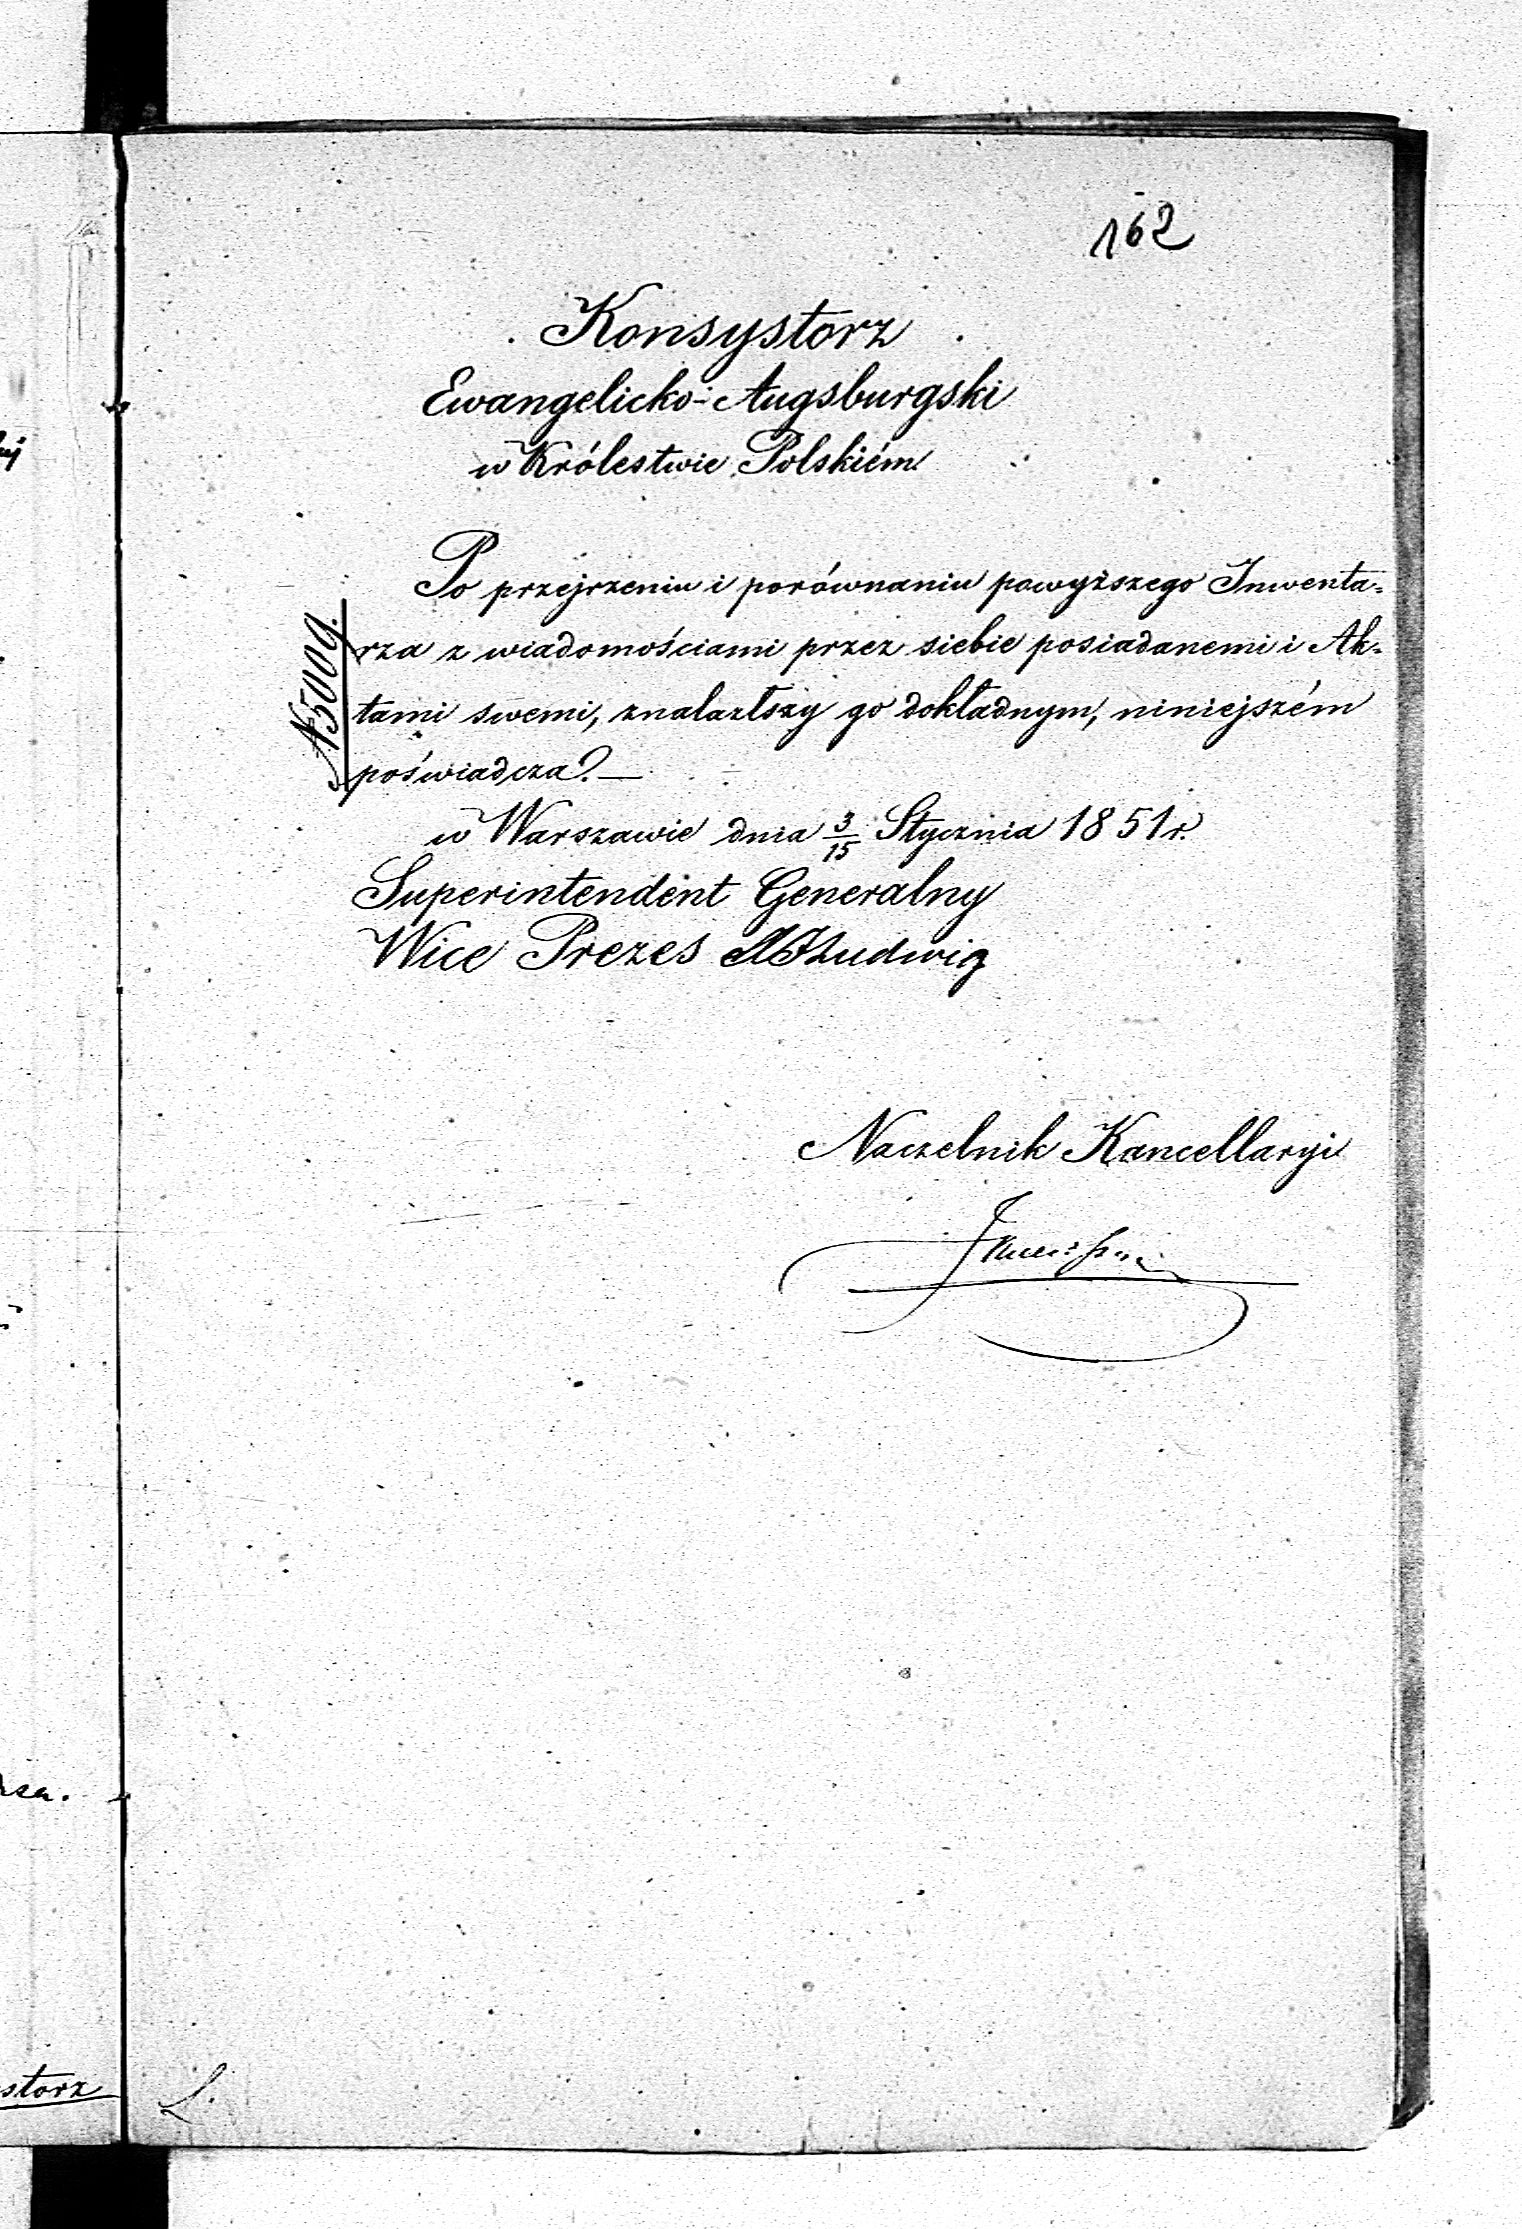 162
Konsystorz
Ewangelicko-Augsburgski
w Królestwie Polskiém
Po przejrzeniu i porównaniu powyższego Inwenta-
rza z wiadomościami przez siebie posiadanemi i Ak-
tami swemi, znalazłszy go dokładnym, niniejszém
poświadcza.—
N 5009.
w Warszawie dnia 3/15 Stycznia 1851 r.
Superintendent Generalny
Wice Prezes Ludwig
Naczelnik Kancellaryi
storz